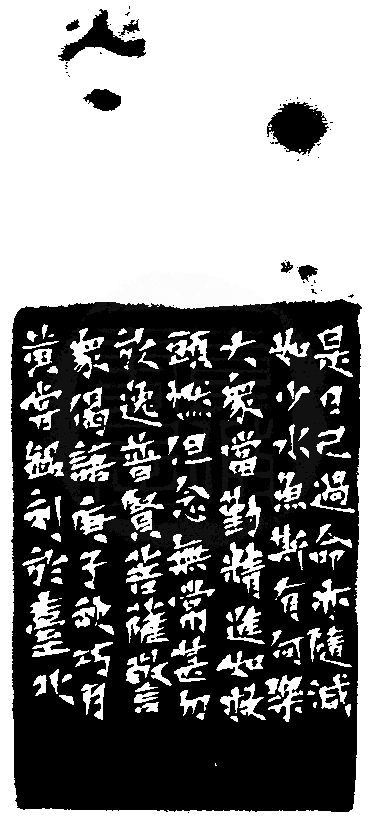 是日已過命亦隨減
如少水魚斯有何樂
大眾當勤精進如救
頭燃但念無常甚勿
放逸普賢菩薩警
眾偈語庚子秋巧月
黃嘗銘刻於臺北